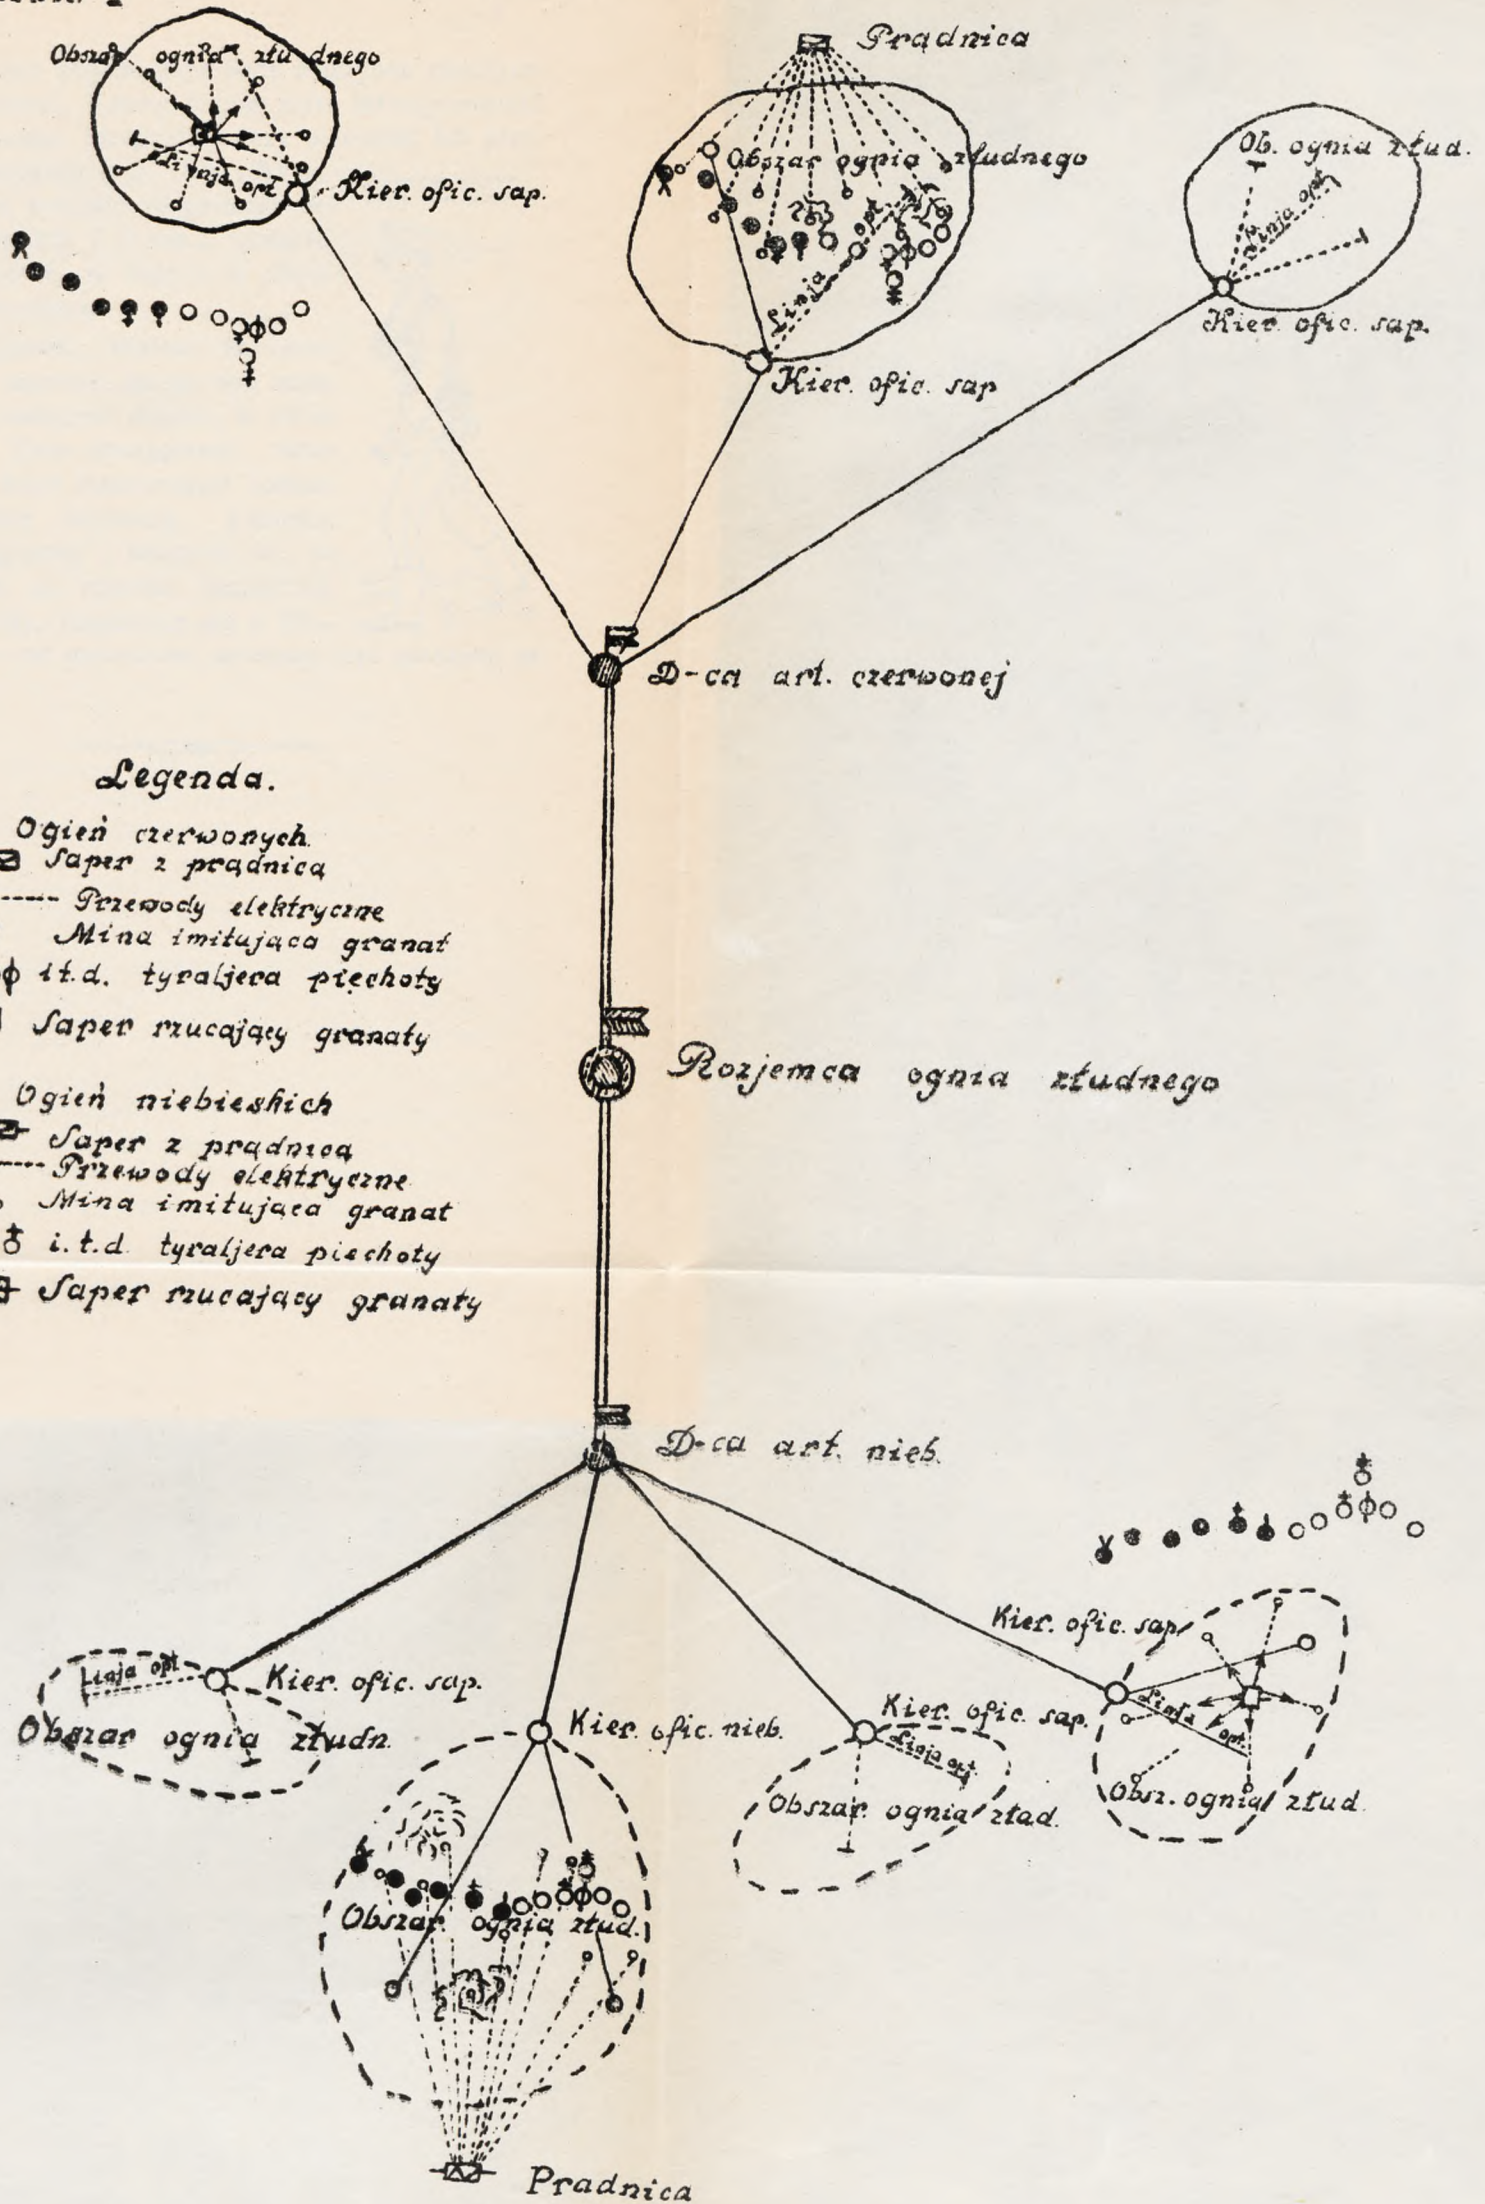 Obszar ognia złudnego
Linja opt.
Kier. ofic. sap.
Prądnica
Obszar ognia złudnego
Linja opt.
Kier. ofic. sap
Ob. ognia złud.
Linja opt.
Kier. ofic. sap.
D-ca art. czerwonej
Legenda.
Ogień czerwonych.
Saper z prądnicą
Przewody elektryczne
Mina imitująca granat
it.d. tyraljera piechoty
Saper rzucający granaty
Ogień niebieskich
Saper z prądnicą
Przewody elektryczne
Mina imitująca granat
i.t.d. tyraljera piechoty
Saper rzucający granaty
Rozjemca ognia złudnego
D-ca art. nieb.
Linja opt
Kier. ofic. sap.
Obszar ognia złudn.
Kier. ofic. nieb.
Obszar ognia złud.
Prądnica
Kier. ofic. sap.
Linja opt.
Obszar. ognia złud.
Kier. ofic. sap.
Linja opt.
Obsz. ognia złud.